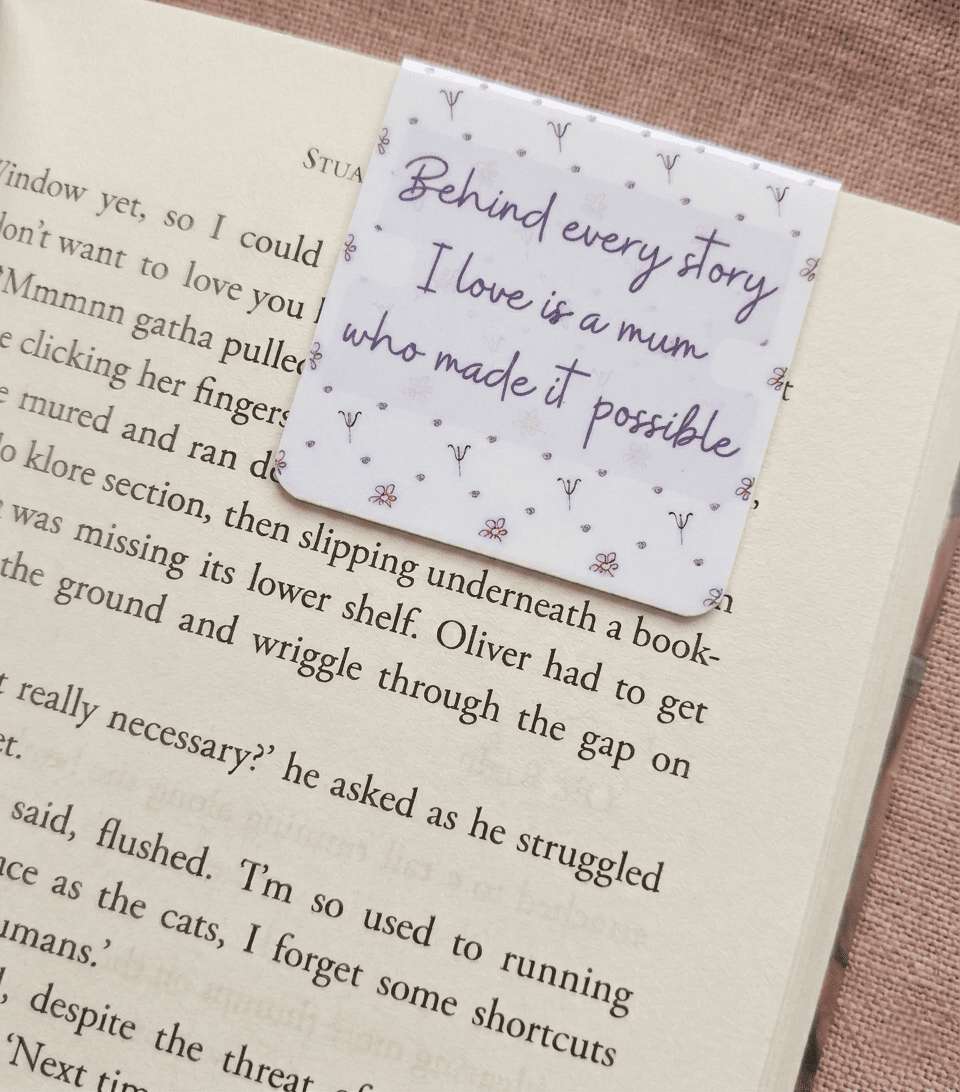 STUA
Behind every story
I love is a mum
who made it possible
Window yet, so I could
don't want to love you
'Mmmnn gatha pulled
e clicking her fingers
e mured and ran
o klore section, then slipping underneath a book-
was missing its lower shelf. Oliver had to get
the ground and wriggle through the gap on
t really necessary?' he asked as he struggled
et.
said, flushed. 'I'm so used to running
nce as the cats, I forget some shortcuts
umans.'
, despite the threat of
'Next tim